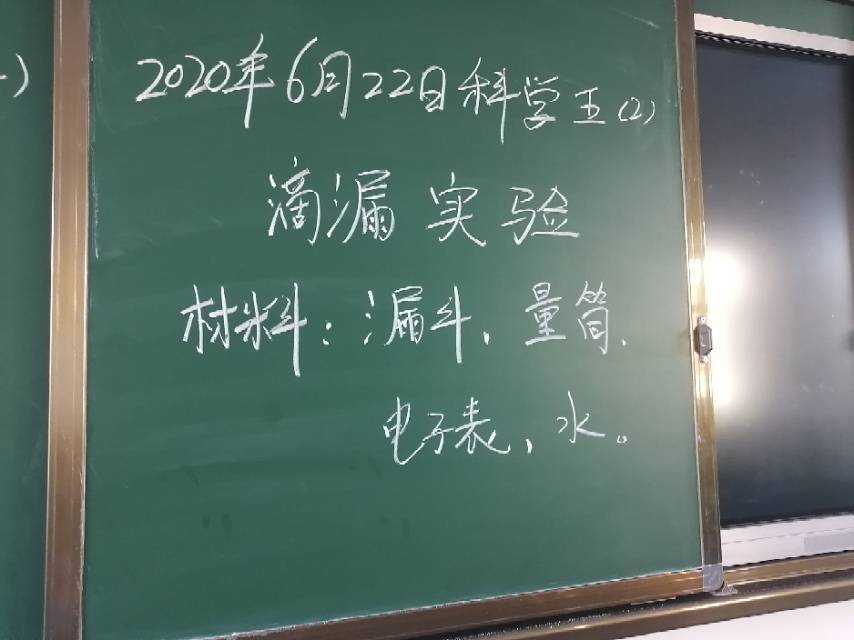 2020年6月22日科学五(2)
滴漏实验
材料:漏斗,量筒.
电子表,水。